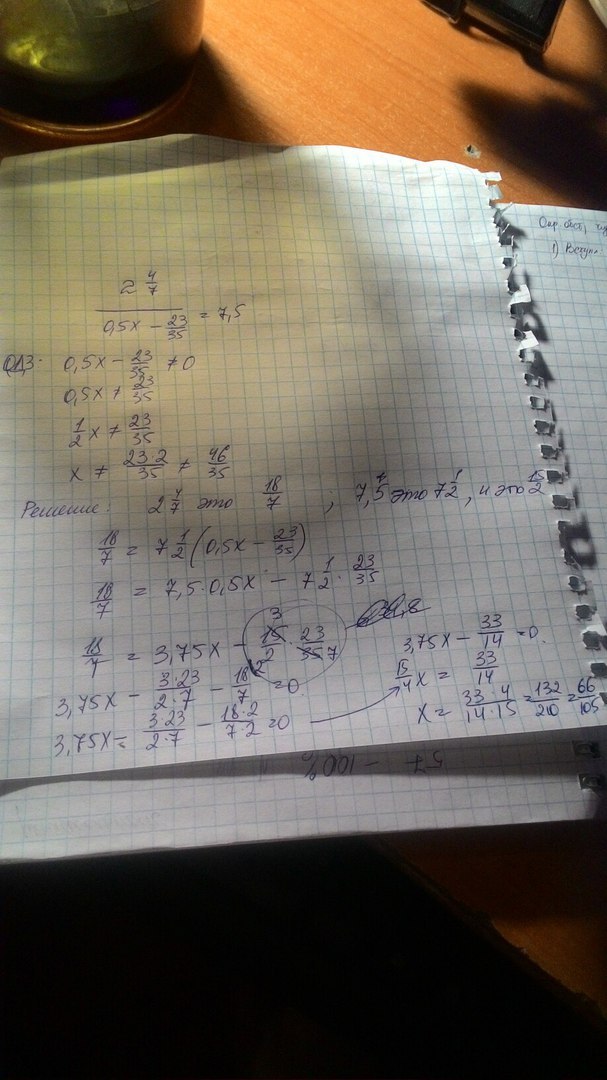 2 4/7
0,5x − 23/35 = 7,5
ОДЗ: 0,5x − 23/35 ≠ 0
0,5x ≠ 23/35
1/2 x ≠ 23/35
x ≠ 23·2/35 ≠ 46/35
Решение: 2 4/7 это 18/7 , 7,5 это 7 1/2, и это 15/2
18/7 = 7 1/2 (0,5x − 23/35)
18/7 = 7,5·0,5x − 7 1/2 · 23/35
18/7 = 3,75x − 15/2 · 23/35 3 7
3,75x − 3·23/2·7 − 18/7 = 0
3,75x = 3·23/2·7 − 18·2/7·2 = 0
3,75x − 33/14 = 0.
15/4 x = 33/14
x = 33·4/14·15 = 132/210 = 66/105
57 − 100%
Опр. бест,
1) Вступл